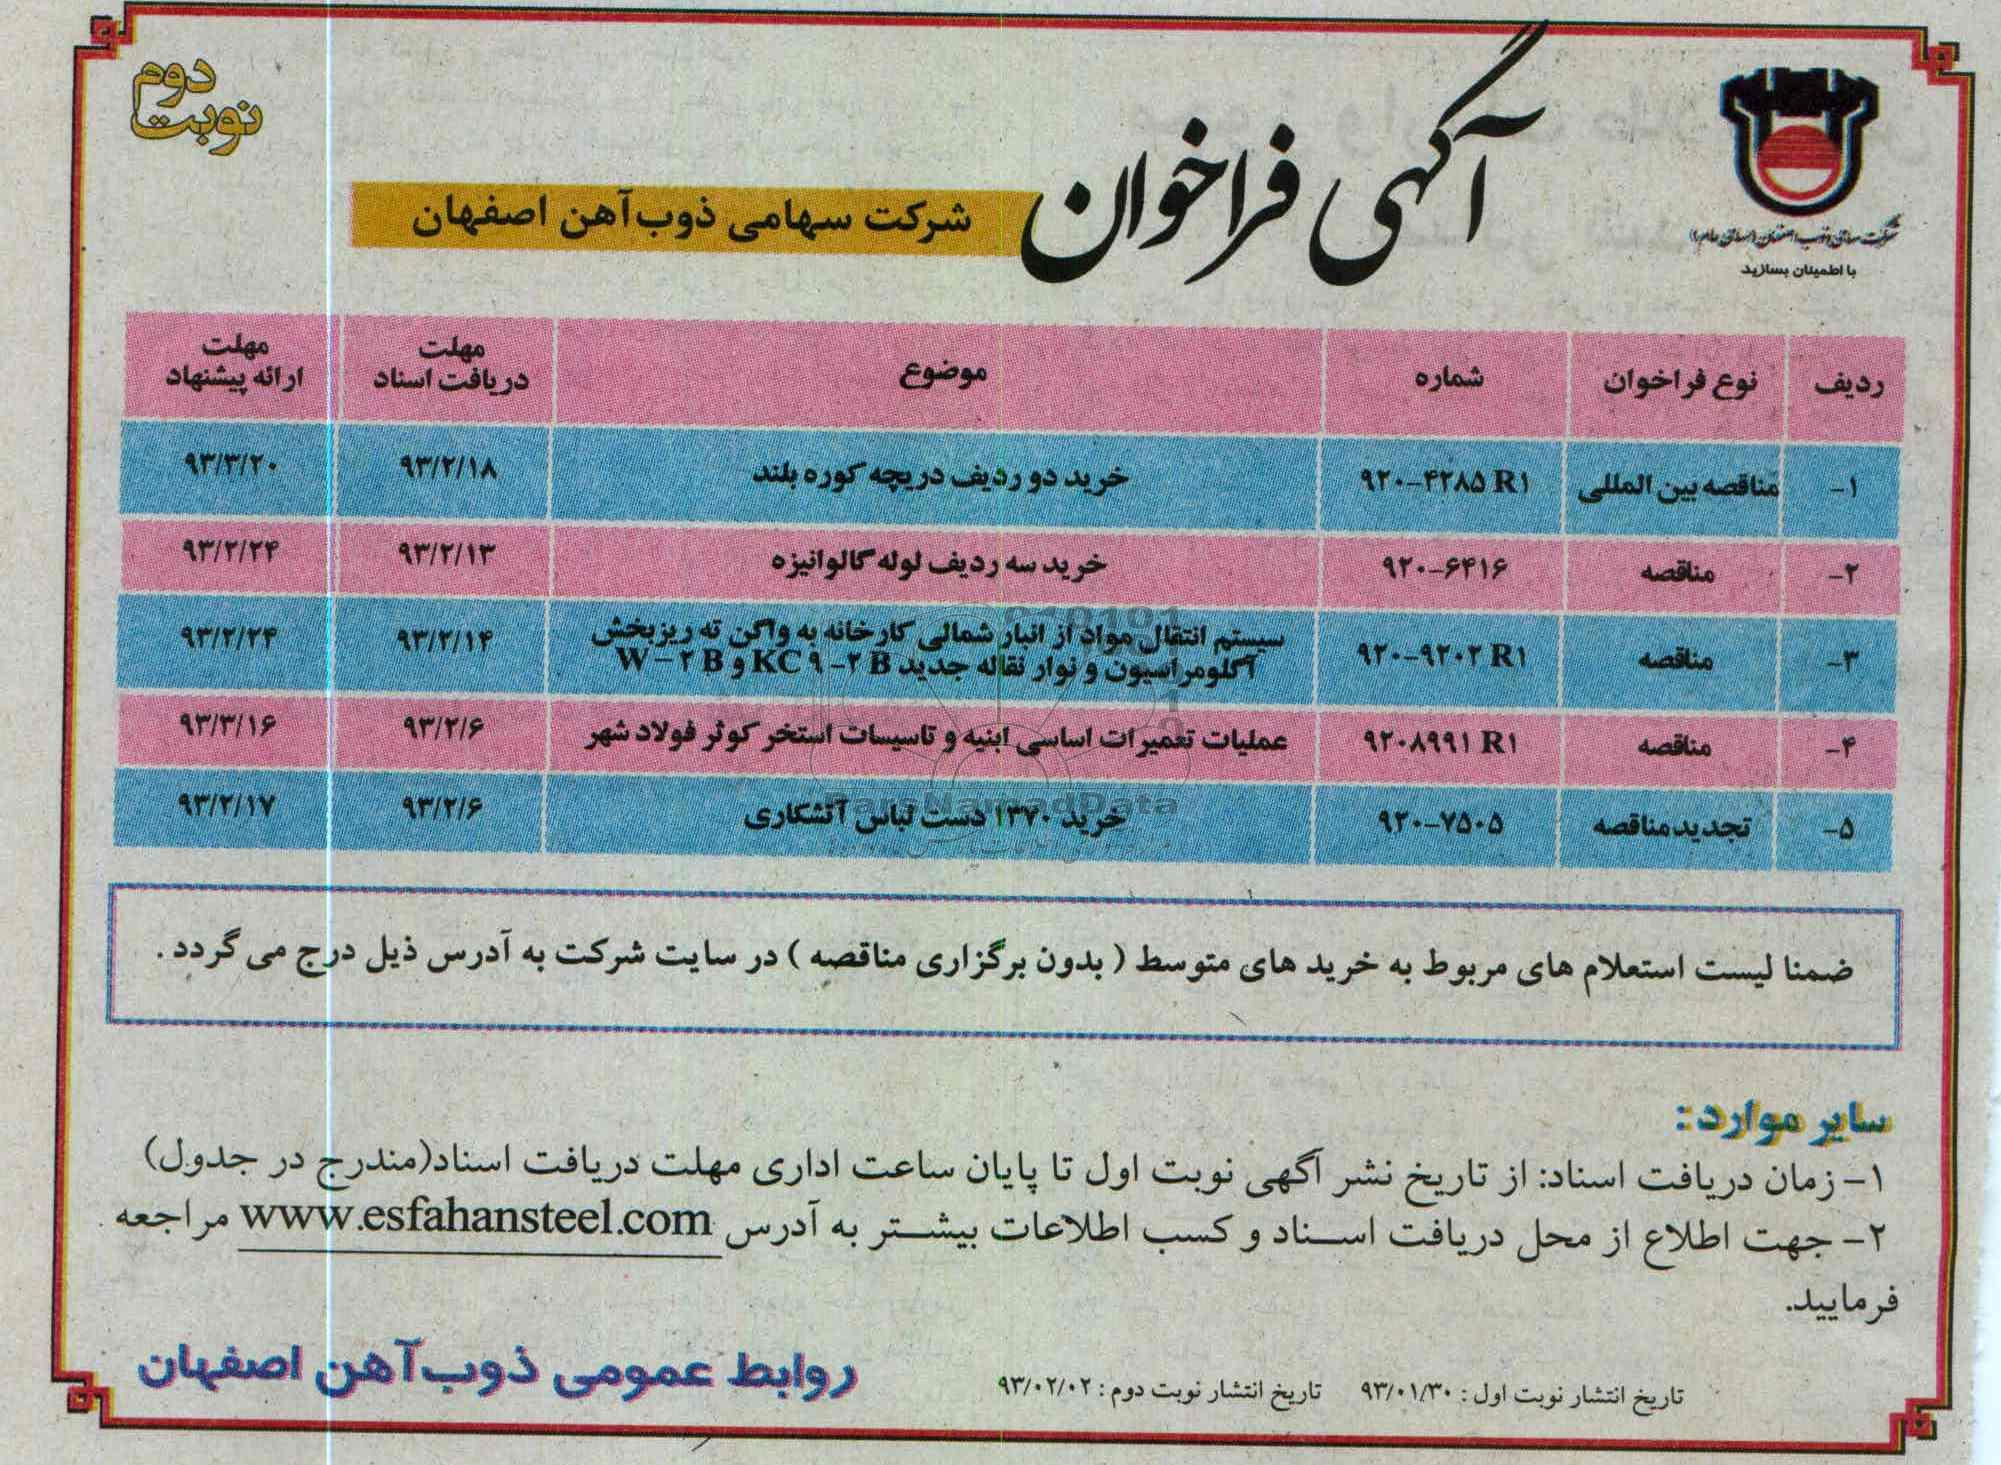 آگهی فراخوان
شرکت سهامی ذوب‌آهن اصفهان
نوبت دوم
با اطمینان بسازید
ردیف نوع فراخوان شماره موضوع مهلت دریافت اسناد مهلت ارائه پیشنهاد
۱- مناقصه بین المللی ۹۲۰-۴۲۸۵ R۱ خرید دو ردیف دریچه کوره بلند ۹۳/۲/۱۸ ۹۳/۳/۲۰
۲- مناقصه ۹۲۰-۶۴۱۶ خرید سه ردیف لوله گالوانیزه ۹۳/۲/۱۳ ۹۳/۲/۲۴
۳- مناقصه ۹۲۰-۹۲۰۲ R۱ سیستم انتقال مواد از انبار شمالی کارخانه به واگن ته ریزبخش
آگلومراسیون و نوار نقاله جدید KC ۹-۲ B و W-۲ B ۹۳/۲/۱۴ ۹۳/۲/۲۴
۴- مناقصه ۹۲۰۸۹۹۱ R۱ عملیات تعمیرات اساسی ابنیه و تاسیسات استخر کوثر فولاد شهر ۹۳/۲/۶ ۹۳/۳/۱۶
۵- تجدید مناقصه ۹۲۰-۷۵۰۵ خرید ۱۳۷۰ دست لباس آتشکاری ۹۳/۲/۶ ۹۳/۲/۱۷
ParsNamadData
ضمنا لیست استعلام های مربوط به خرید های متوسط ( بدون برگزاری مناقصه ) در سایت شرکت به آدرس ذیل درج می گردد .
سایر موارد :
۱- زمان دریافت اسناد: از تاریخ نشر آگهی نوبت اول تا پایان ساعت اداری مهلت دریافت اسناد(مندرج در جدول)
۲- جهت اطلاع از محل دریافت اسناد و کسب اطلاعات بیشتر به آدرس www.esfahansteel.com مراجعه
فرمایید.
تاریخ انتشار نوبت اول : ۹۳/۰۱/۳۰ تاریخ انتشار نوبت دوم : ۹۳/۰۲/۰۲
روابط عمومی ذوب‌آهن اصفهان